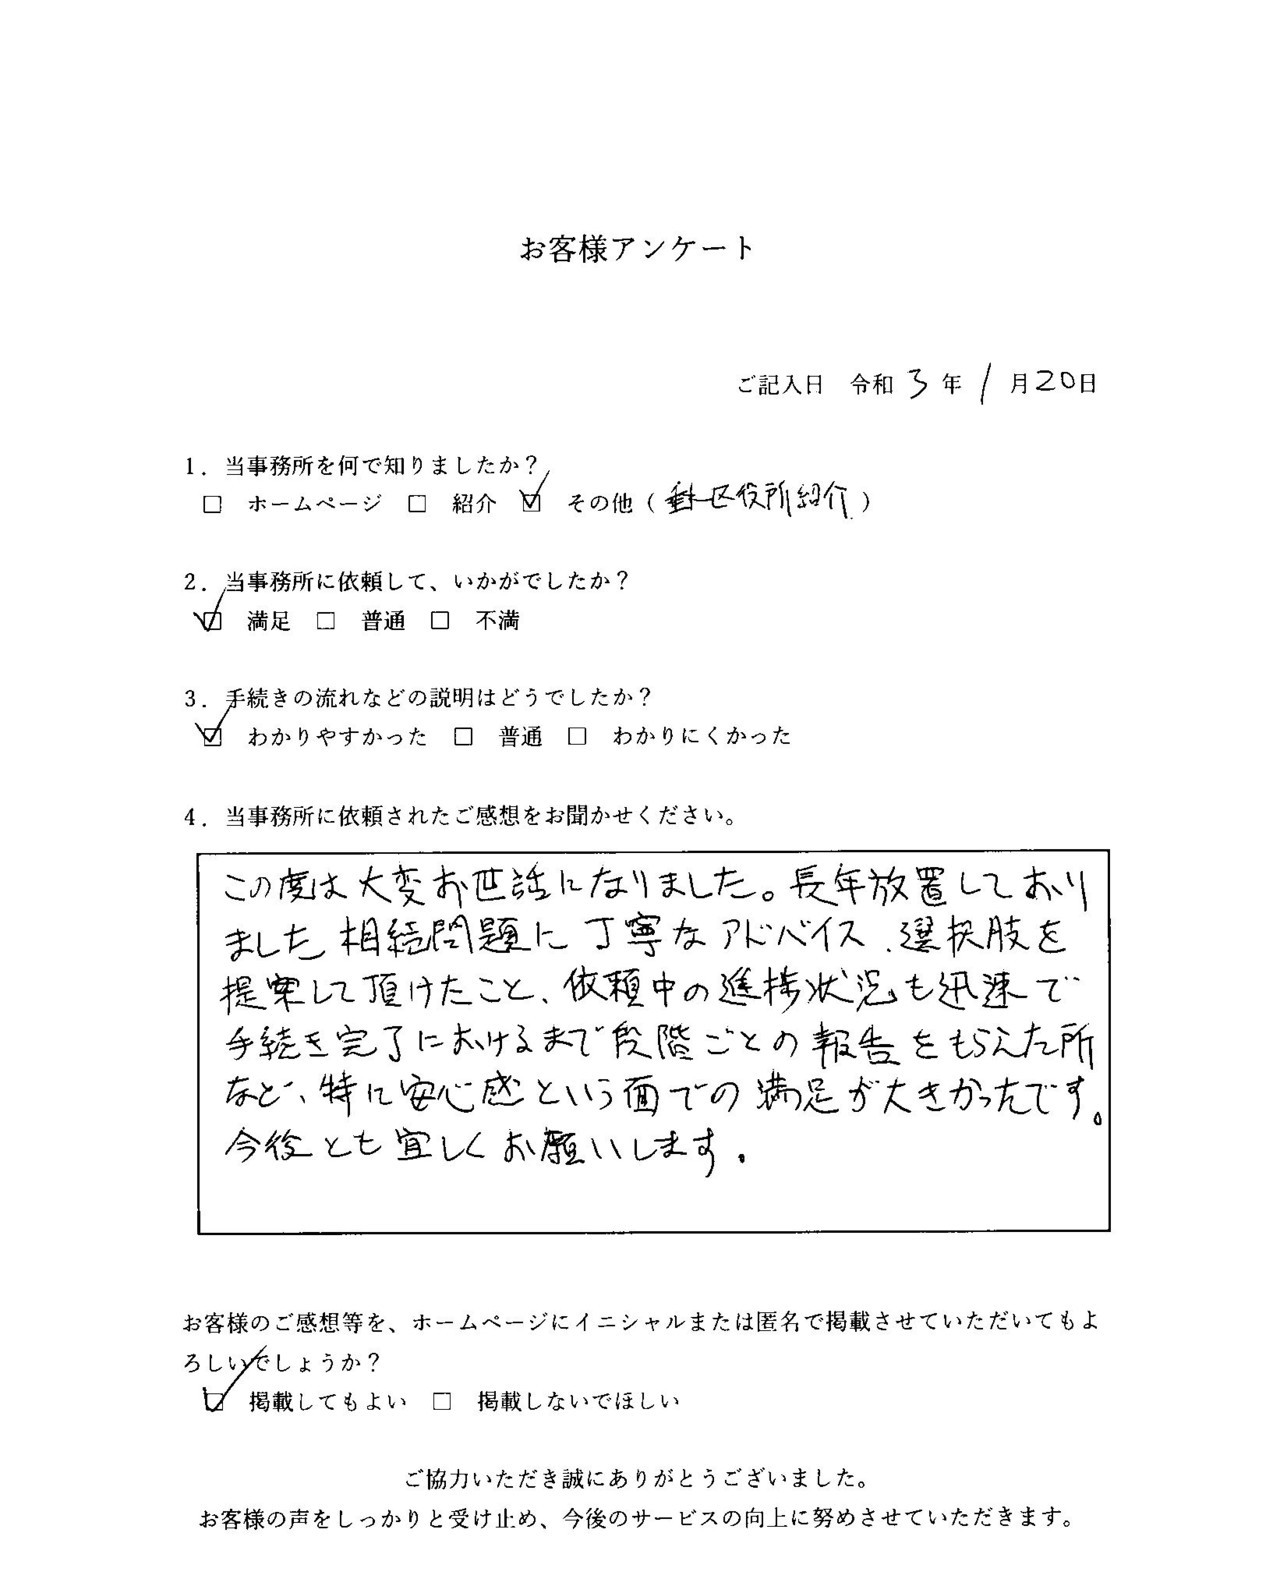 お客様アンケート
ご記入日 令和 3 年 1 月 20 日
1．当事務所を何で知りましたか？
□ ホームページ □ 紹介 ☑ その他（ 区役所紹介 ）
2．当事務所に依頼して、いかがでしたか？
☑ 満足 □ 普通 □ 不満
3．手続きの流れなどの説明はどうでしたか？
☑ わかりやすかった □ 普通 □ わかりにくかった
4．当事務所に依頼されたご感想をお聞かせください。
この度は大変お世話になりました。長年放置しており
ました相続問題に丁寧なアドバイス、選択肢を
提案して頂けたこと、依頼中の進捗状況も迅速で
手続き完了におけるまで段階ごとの報告をもらえた所
など、特に安心感という面での満足が大きかったです。
今後とも宜しくお願いします。
お客様のご感想等を、ホームページにイニシャルまたは匿名で掲載させていただいてもよ
ろしいでしょうか？
☑ 掲載してもよい □ 掲載しないでほしい
ご協力いただき誠にありがとうございました。
お客様の声をしっかりと受け止め、今後のサービスの向上に努めさせていただきます。